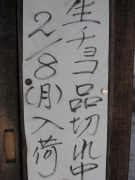 生チョコ品切れ中
2/8(月)入荷